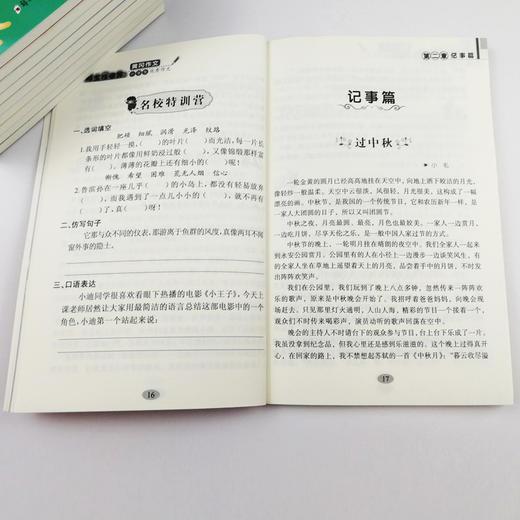 黄冈作文
小学生优秀作文
名校特训营
一、选词填空
肥矮 细腻 润滑 光泽 纹路
1.我用手轻轻一摸，（ ）的叶片（ ）而光洁，每一片长
条形的叶片都像用鲜奶浸过般（ ），又像锦缎那样富
有（ ）。薄薄的花瓣上还有细小的（ ）呢！
惭愧 希望 困难 荒无人烟 信心
2.鲁滨孙在一座几乎（ ）的小岛上，都没有轻易放弃
（ ），而我遇到了一点儿小小的（ ），就不再有
（ ）了，真（ ）啊！
二、仿写句子
它那与众不同的仪表，那游离于鱼群的风度，真像两耳不闻
窗外事的隐士。
三、口语表达
小迪同学很喜欢看眼下热播的电影《小王子》，今天上
课老师居然让大家用最简洁的语言总结这部电影中的一个
角色，小迪第一个站起来说：
16
第二章 记事篇
记事篇
过中秋
▶ 小 毛
一轮金黄的圆月已经高高地挂在天空中，向地上洒下皎洁的月光，
像轻纱一般温柔。天空中云很淡，风很轻，月光很美，这构成了一幅
漂亮的画。中秋节，是我国的一个传统节日，它和农历新年一样，是
一家人大团圆的日子，所以又叫团圆节。
中秋之夜，月亮最圆、最亮，月色也最皎美。一家人一边赏月，
一边吃月饼，尽享天伦之乐，是一般中国人家度过节日的方式。
中秋节的晚上，一轮明月挂在晴朗的夜空中。我们全家人一起来
到永安公园赏月。公园里有的人在小径上一边漫步一边谈笑风生，有
的全家人坐在草地上遥望着天上的月亮，品尝着手中的月饼，不时发
出阵阵欢笑声。
我们在公园里，玩到了晚上八点多钟，忽然传来一阵阵欢
乐的歌声，原来是中秋晚会开始了。我招呼着爸爸妈妈，向晚会
现场赶去。只见那里灯火通明，人山人海，精彩的节目一个接着一个，
观众们不时传来喝彩声，演员动听的歌声回荡在空中。
晚会的主持人不时请台下的观众参与节目，台上台下乐成了一片。
我虽没拿到纪念品，但我心里还是感到乐滋滋的。这个晚上过得真开
心，在回家的路上，我不禁想起苏轼的一首《中秋月》：“暮云收尽溢
17